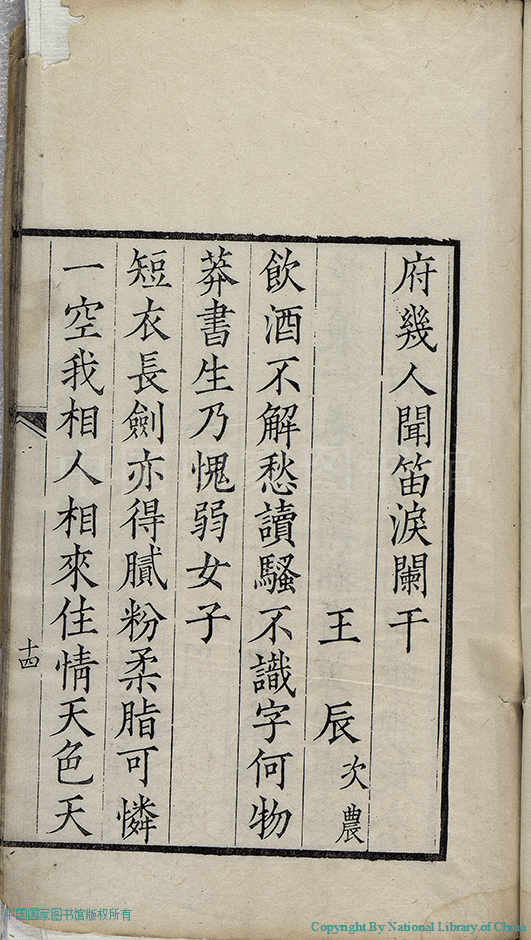 府幾人聞笛淚闌干
王辰次農
飲酒不解愁讀騷不識字何物
莽書生乃愧弱女子
短衣長劍亦得膩粉柔脂可憐
一空我相人相來住情天色天
十四
中国国家图书馆版权所有
Copyright By National Library of China